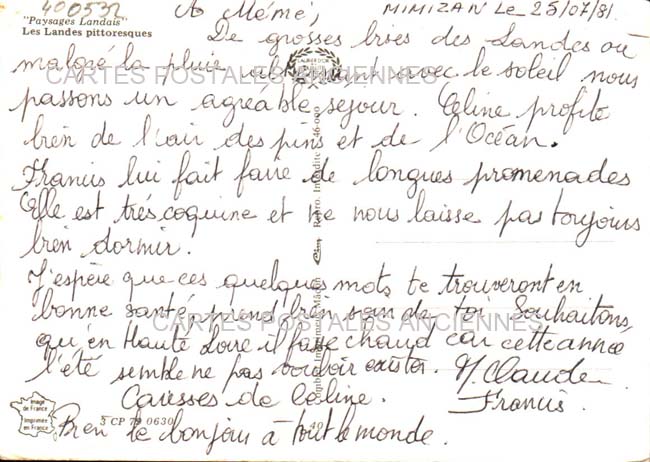 400532
"Paysages Landais"
Les Landes pittoresques
A Mémé,
MIMIZAN LE 25/07/81.
De grosses bises des Landes où
malgré la pluie avec le soleil nous
passons un agréable séjour. Céline profite
bien de l'air des pins et de l'Océan.
Francis lui fait faire de longues promenades
Elle est très coquine et ne nous laisse pas toujours
bien dormir.
J'espère que ces quelques mots te trouveront en
bonne santé, prend bien soin de toi. Souhaitons,
qu'en Haute Loire il fasse chaud car cette année
l'été semble ne pas vouloir exister.
M. Claude
Francis.
Caresses de Céline.
Bien le bonjour à tout le monde.
CARTES POSTALES ANCIENNES
CARTES POSTALES ANCIENNES
Image de France
Imprimée en France
3 CP 79 0630
40